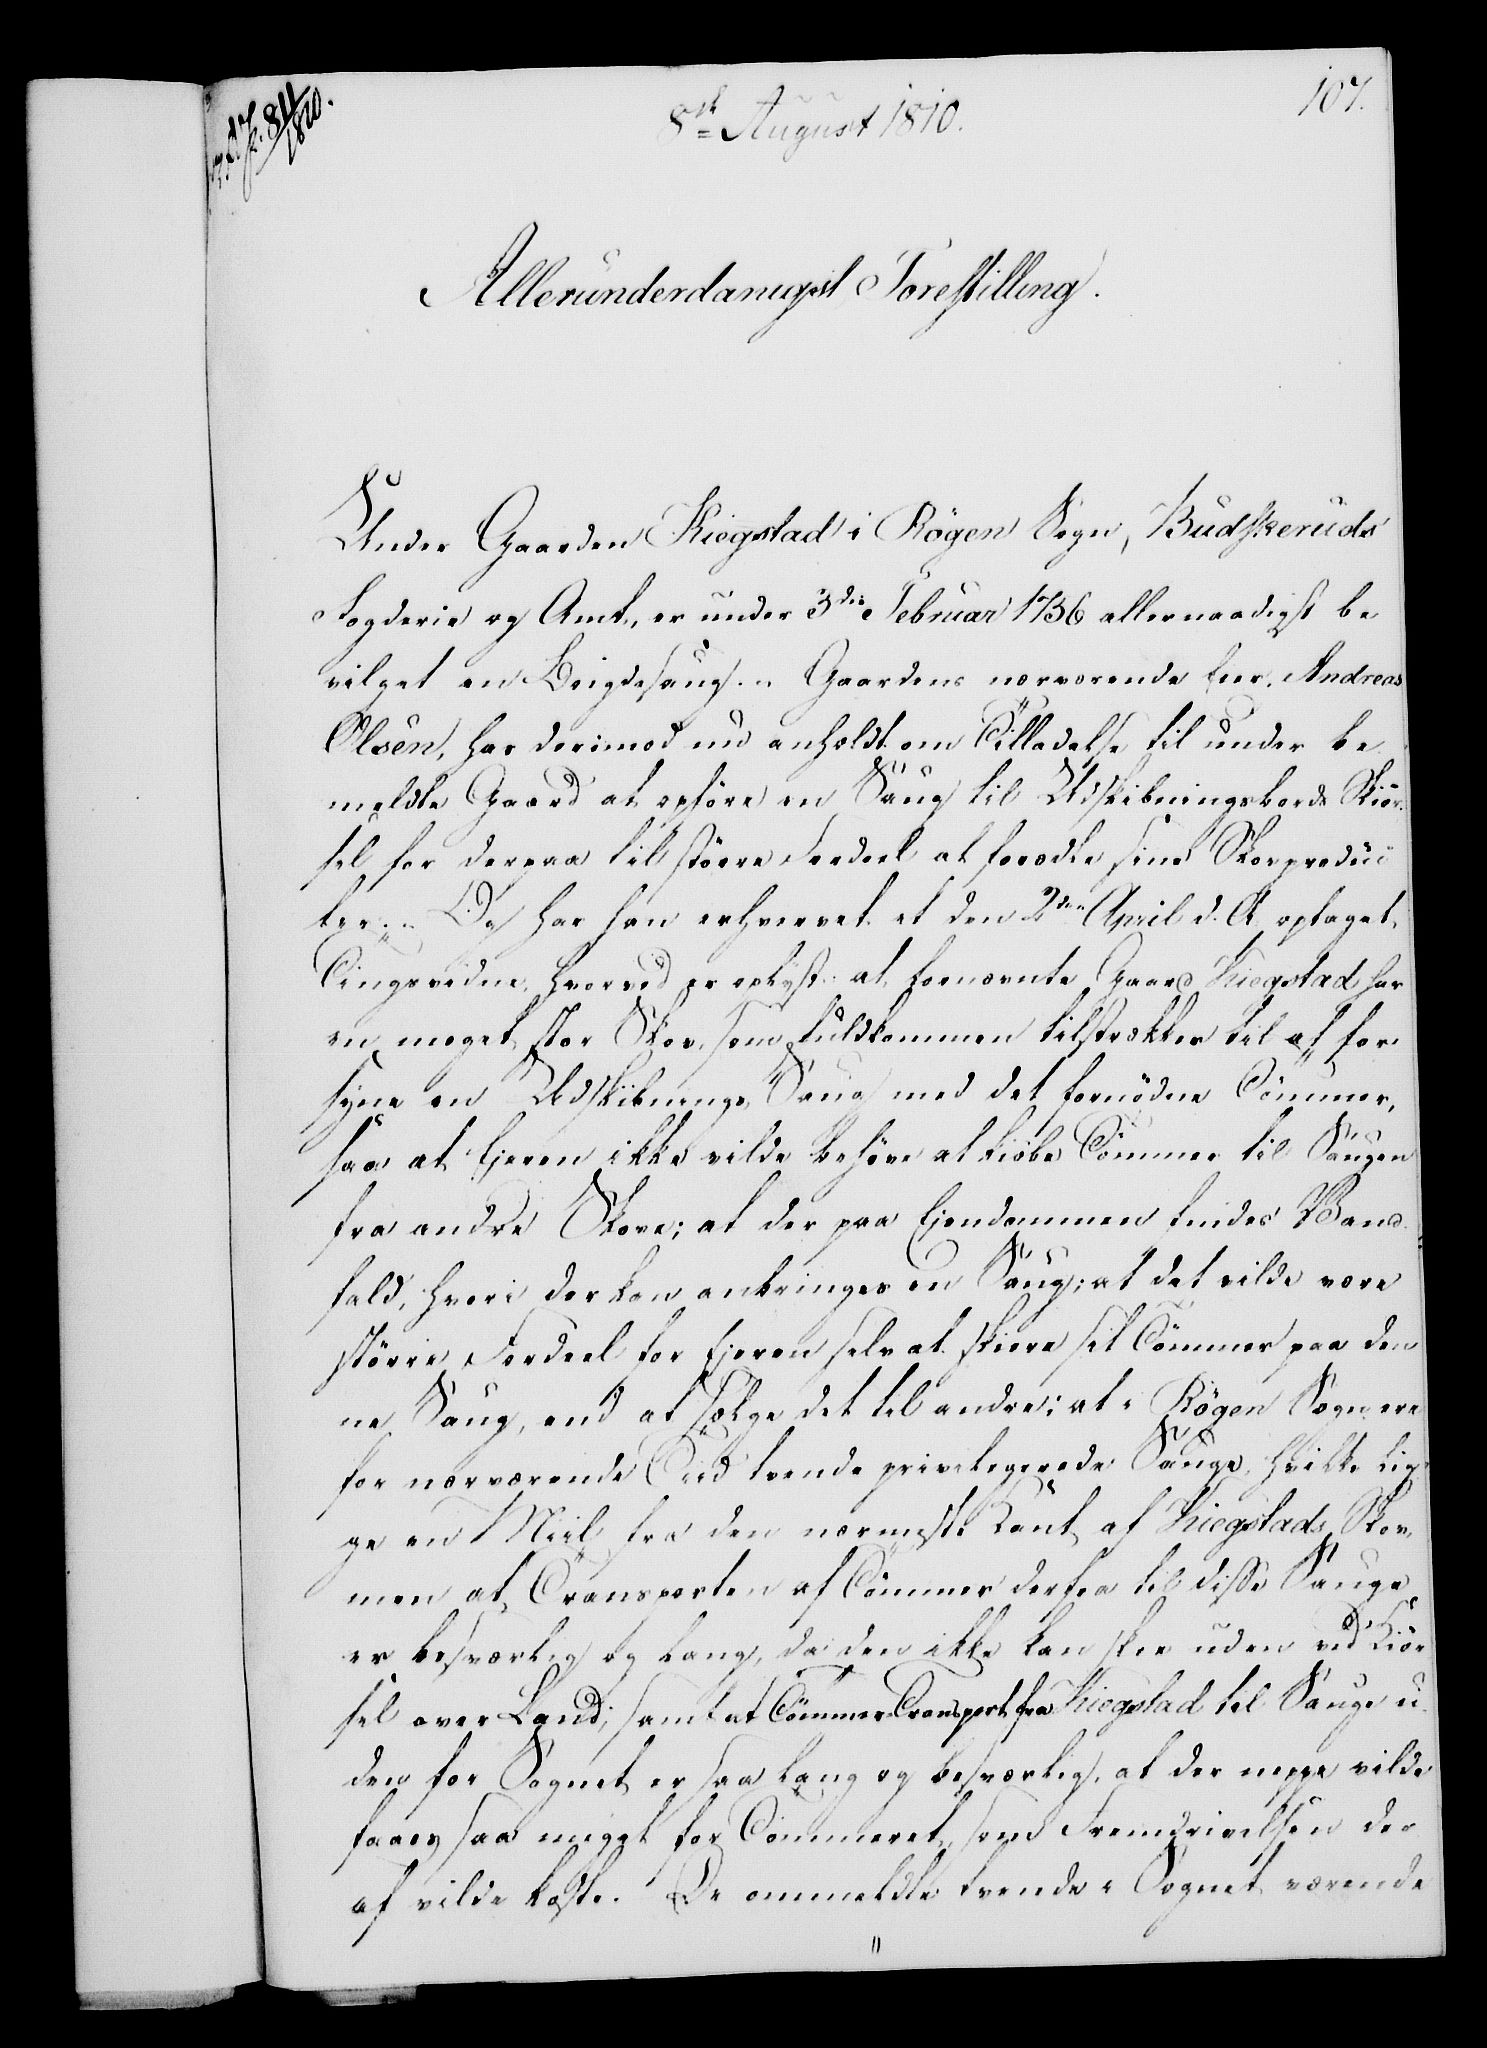 107.
8de August 1810.
84/1810.
Allerunderdanigst Forestilling.
Under Gaarden Kiegstad i Røgen Sogn, Budskeruds
Fogderie og Amt, er under 3die Februar 1736 allernaadigst be
vilget en Bøigdesaug. Gaardens nærværende Eier, Andreas
Olsen, har derimod nu anholdt om Tilladelse til under be
meldte Gaard at opføre en Saug til Udskibningsbords Skiør
sel for derpaa til større Fordeel at forædle sine Skovproduc
ter. Og har han erhvervet et den 2den April d. A. optaget
Tingsvidne, hvorved er oplyst: at fornævnte Gaard Kiegstad har
en meget stor Skov, som fuldkommen tilstrækker til at for
syne en Udskibnings Saug med det fornødne Tømmer,
saa at Ejeren ikke vilde behøve at kiøbe Tømmer til Saugen
fra andre Skove; at der paa Ejendommen findes Vand
fald, hvori der kan anbringes en Saug; at det vilde være
større Fordeel for Ejeren selv at skiære sit Tømmer paa den
ne Saug, end at sælge det til andre; at i Røgen Sogn ere
for nærværende Tiid tvende privilegerede Sauge, hvilke lig
ge en Miil fra den nærmeste Kant af Kiegstads Skov,
men at Transporten af Tømmer derfra til disse Sauge
er besværlig og lang, da den ikke kan skee uden ved Kiør
sel over Land; samt at Tømmer Transport fra Kiegstad til Sauge u
den for Sognet er saa lang og besværlig, at der neppe vilde
faaes saa meget for Tømmeret, som Fremdrivelsen der
af vilde koste. De ommeldte tvende i Sognet værende